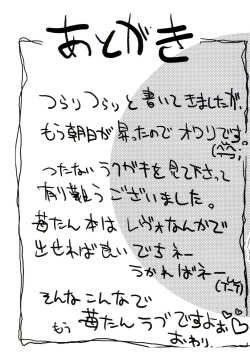 あとがき
つらりつらりと書いてきましたが、
もう朝日が昇ったのでオワリです。
つたないラクガキを見て下さって
有り難うございました。
苺たん本はレヴォなんかで
出せれば良いでちネー
うかればネー
そんなこんなで
もう苺たんラブですよぉ♡♡
おわり.